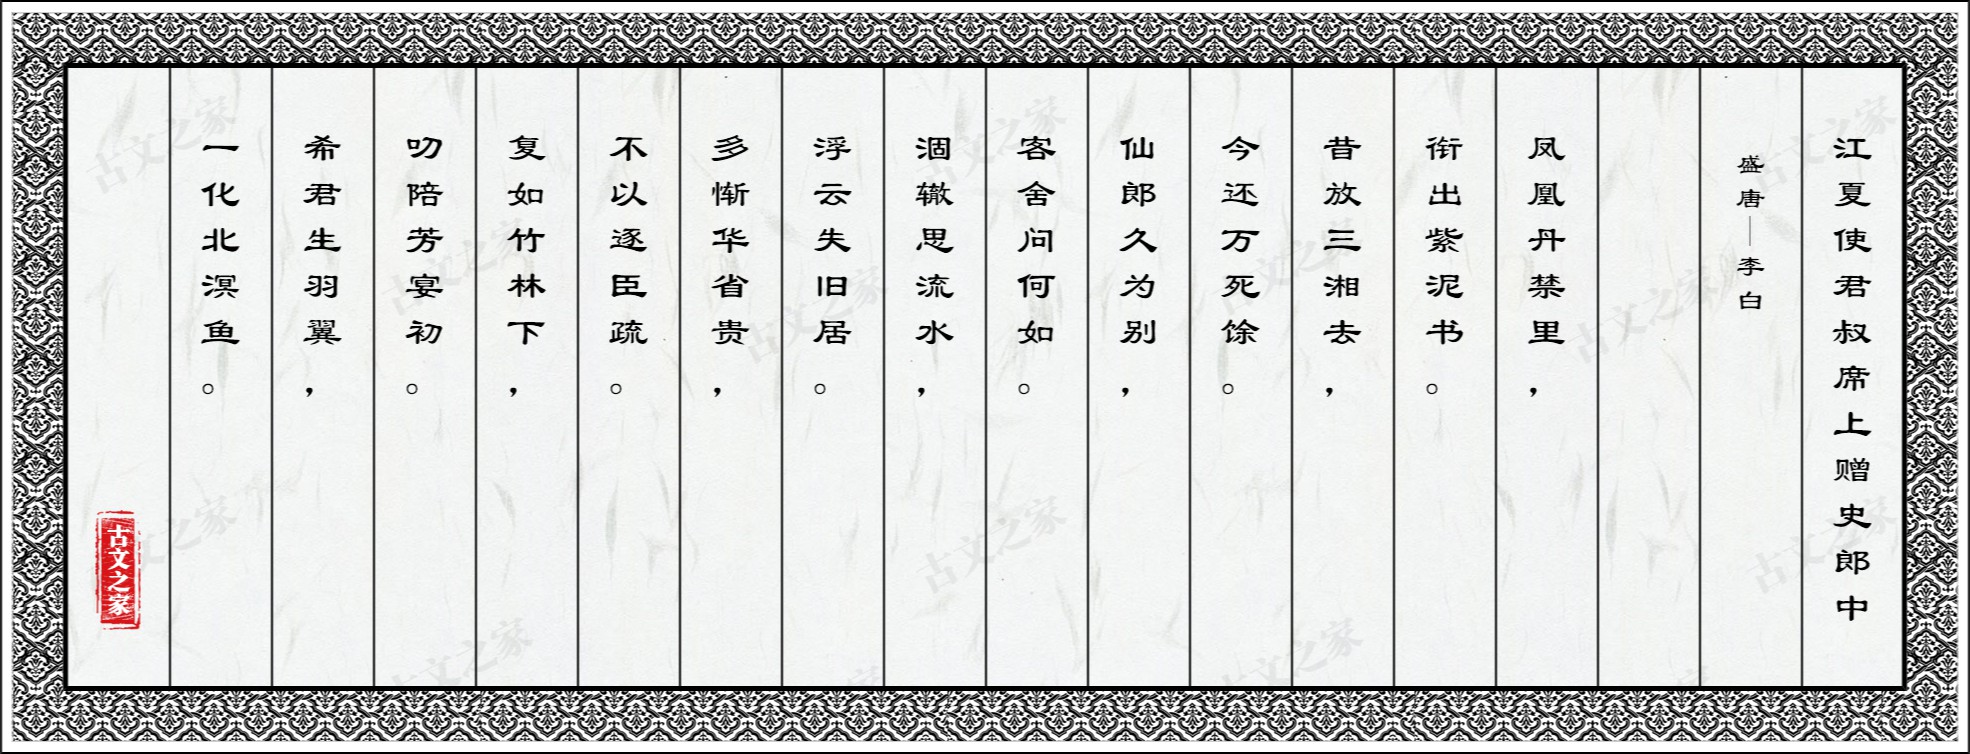 江夏使君叔席上赠史郎中
盛唐—李白
凤凰丹禁里，
衔出紫泥书。
昔放三湘去，
今还万死馀。
仙郎久为别，
客舍问何如。
涸辙思流水，
浮云失旧居。
多惭华省贵，
不以逐臣疏。
复如竹林下，
叨陪芳宴初。
希君生羽翼，
一化北溟鱼。
古文之家